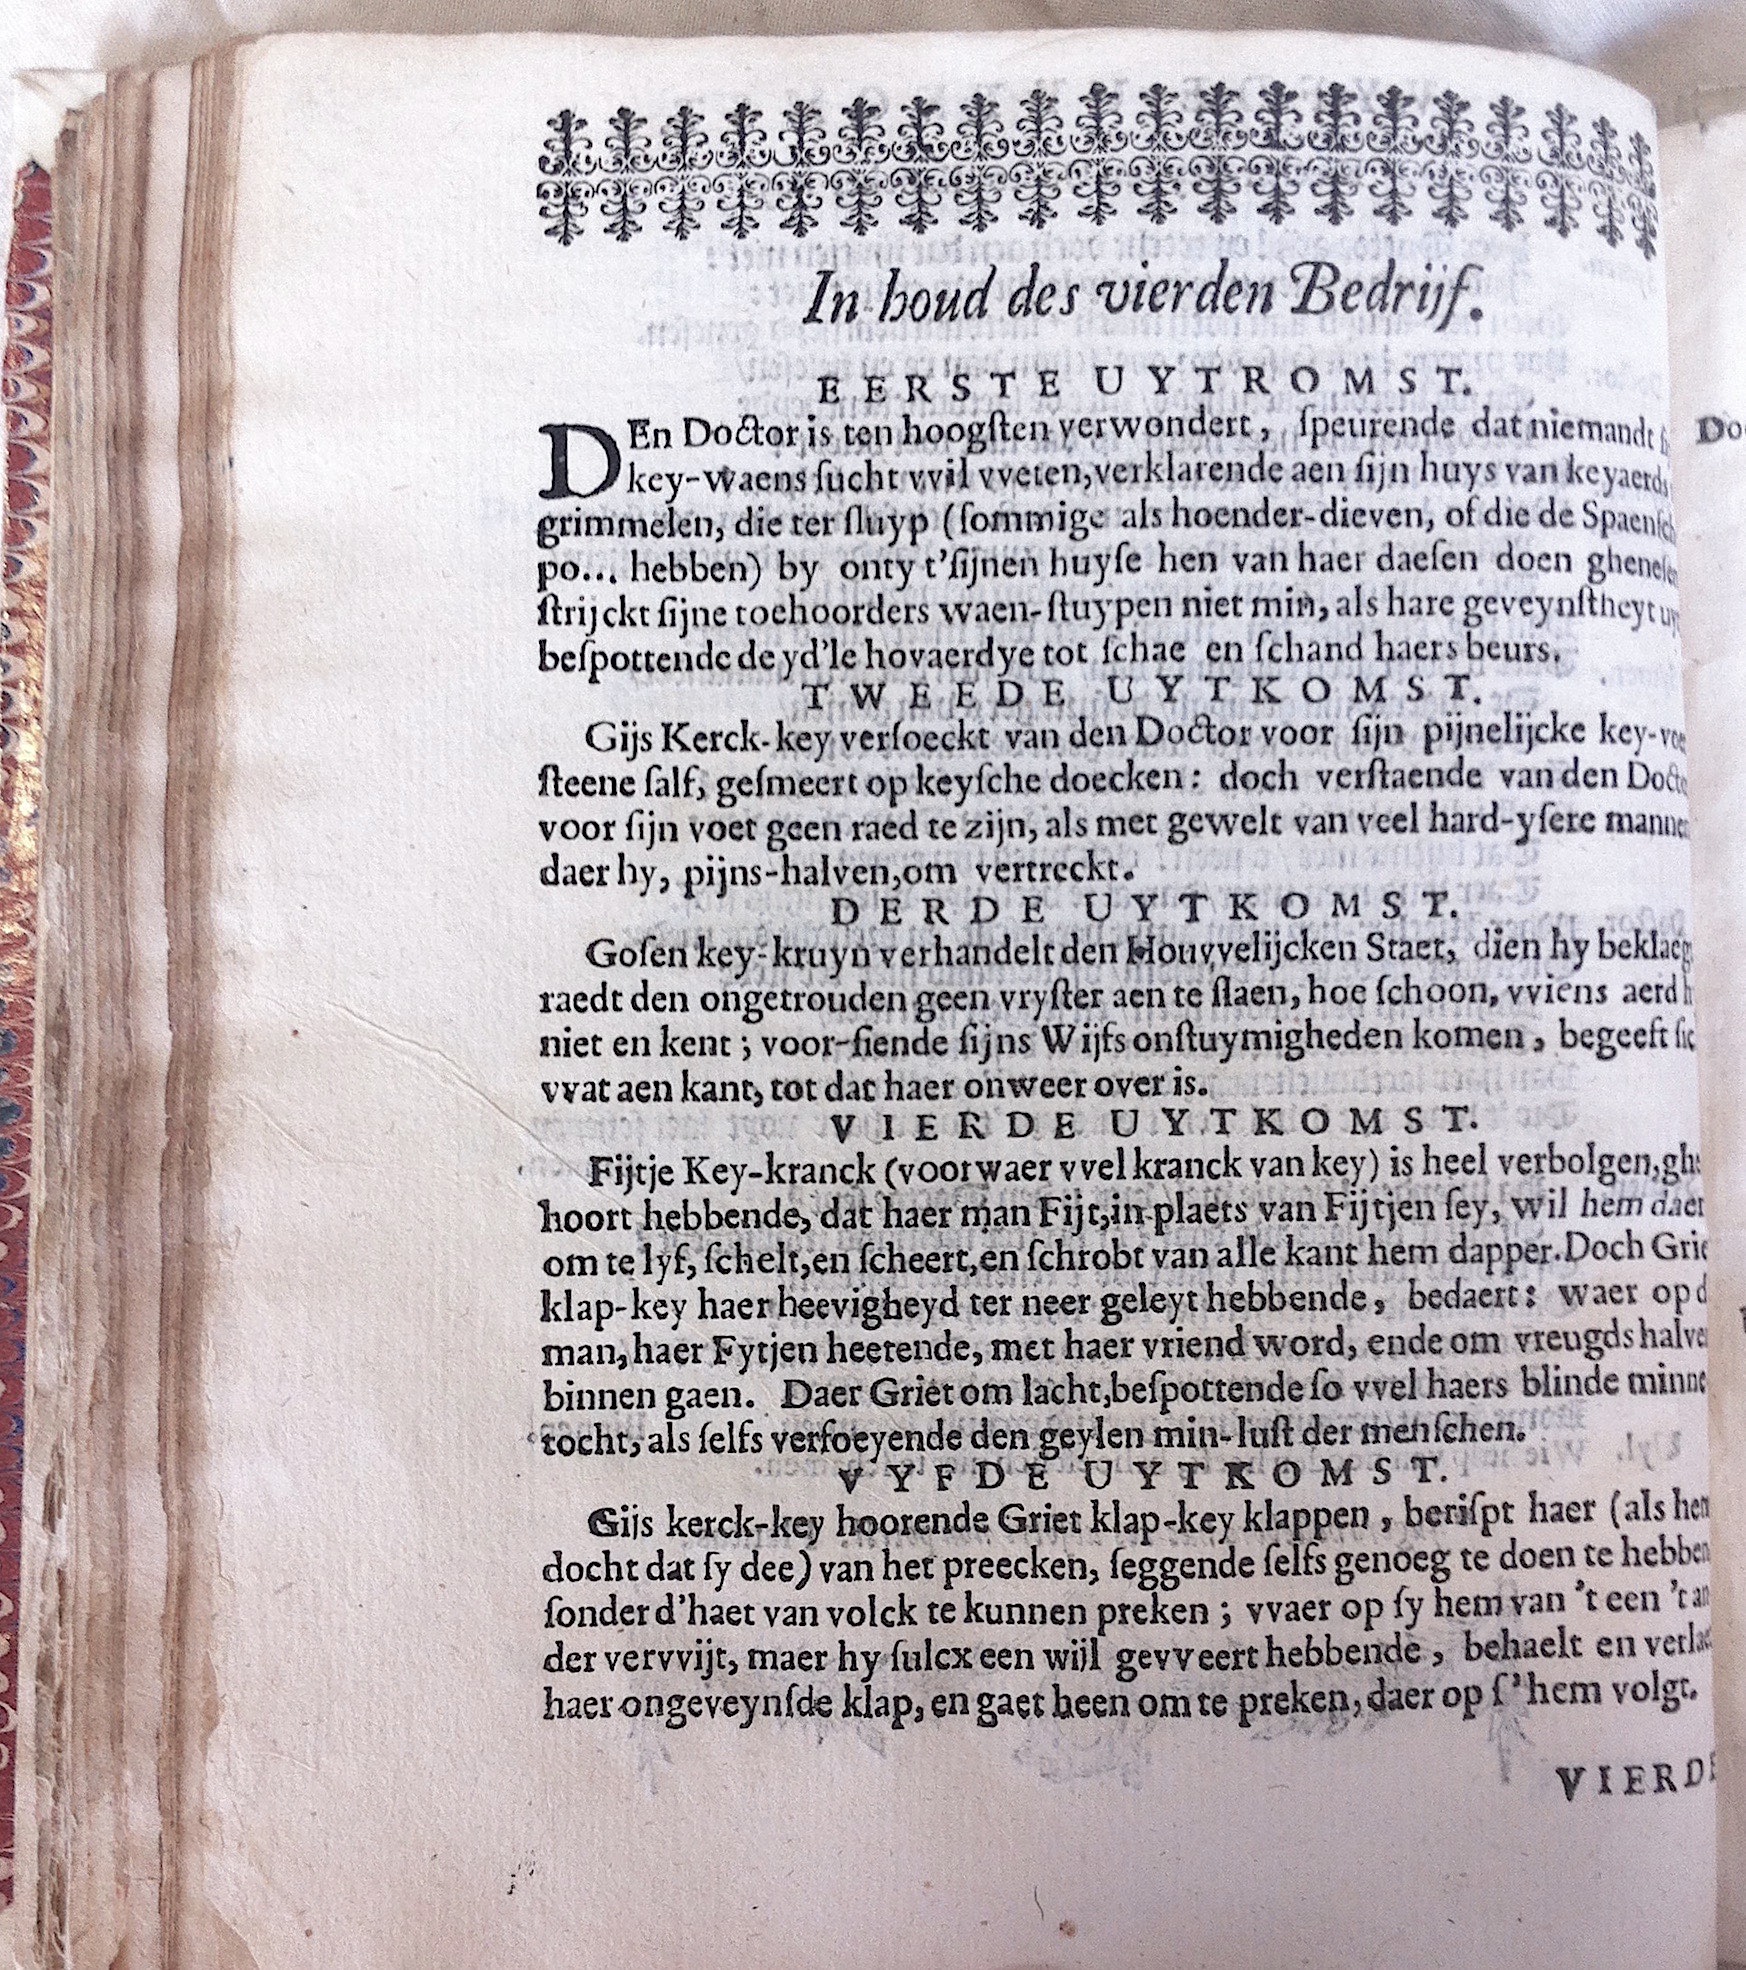 In houd des vierden Bedrijf.
EERSTE UYTROMST.
DEn Doctor is ten hoogſten verwondert, ſpeurende dat niemandt
key-waens ſucht vvil vveten, verklarende aen ſijn huys van keyaerds
grimmelen, die ter ſluyp (ſommige als hoender-dieven, of die de Spaenſch
po... hebben) by onty t'ſijnen huyſe hen van haer daeſen doen gheneſen
ſtrijckt ſijne toehoorders waen-ſtuypen niet min, als hare geveynſtheyt uy
beſpottende de yd'le hovaerdye tot ſchae en ſchand haers beurs.
TWEEDE UYTKOMST.
Gijs Kerck-key verſoeckt van den Doctor voor ſijn pijnelijcke key-voe
ſteene ſalf, geſmeert op keyſche doecken: doch verſtaende van den Docto
voor ſijn voet geen raed te zijn, als met gewelt van veel hard-yſere manne
daer hy, pijns-halven, om vertreckt.
DERDE UYTKOMST.
Goſen key-kruyn verhandelt den Houvvelijcken Staet, dien hy beklaeg
raedt den ongetrouden geen vryſter aen te ſlaen, hoe ſchoon, vviens aerd h
niet en kent; voor-ſiende ſijns Wijfs onſtuymigheden komen, begeeft ſic
vvat aen kant, tot dat haer onweer over is.
VIERDE UYTKOMST.
Fijtje Key-kranck (voorwaer vvel kranck van key) is heel verbolgen, ghe
hoort hebbende, dat haer man Fijt, in plaets van Fijtjen ſey, wil hem daer
om te lyf, ſchelt, en ſcheert, en ſchrobt van alle kant hem dapper. Doch Grie
klap-key haer heevigheyd ter neer geleyt hebbende, bedaert: waer op d
man, haer Fytjen heetende, met haer vriend word, ende om vreugds halve
binnen gaen. Daer Griet om lacht, beſpottende ſo vvel haers blinde minne
tocht, als ſelfs verfoeyende den geylen min-luſt der menſchen.
VYFDE UYTKOMST.
Gijs kerck-key hoorende Griet klap-key klappen, beriſpt haer (als hem
docht dat ſy dee) van het preecken, ſeggende ſelfs genoeg te doen te hebben
ſonder d'haet van volck te kunnen preken; vvaer op ſy hem van 't een 't an
der vervvijt, maer hy ſulcx een wijl gevveert hebbende, behaelt en verlae
haer ongeveynſde klap, en gaet heen om te preken, daer op ſ'hem volgt.
VIERDE
Do